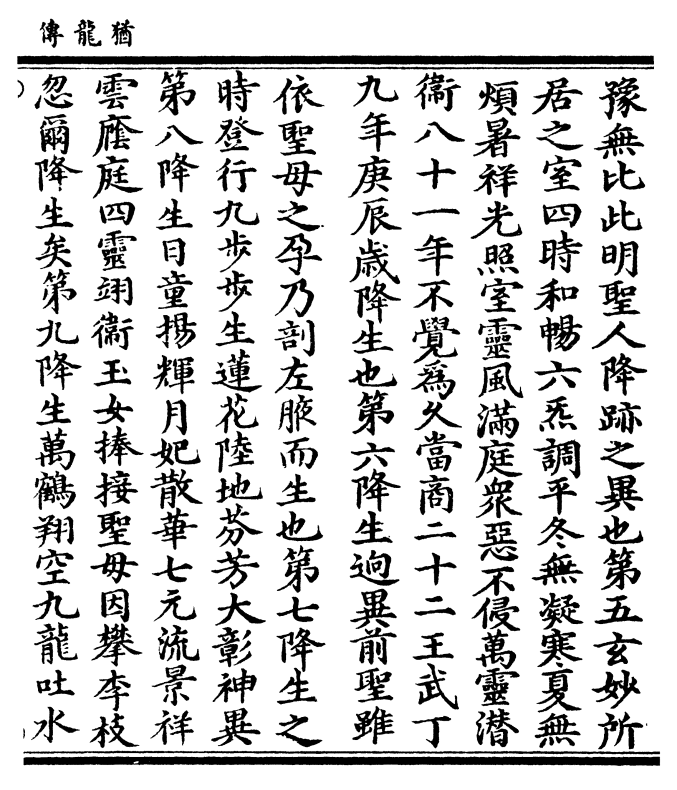 猶龍傳
豫無比此明聖人降跡之異也第五玄妙所
居之室四時和暢六炁調平冬無凝寒夏無
煩暑祥光照室靈風滿庭衆惡不侵萬靈潛
衞八十一年不覺爲久當商二十二王武丁
九年庚辰歲降生也第六降生逈異前聖雖
依聖母之孕乃剖左腋而生也第七降生之
時登行九步步生蓮花陸地芬芳大彰神異
第八降生日童揚輝月妃散華七元流景祥
雲廕庭四靈翊衞玉女捧接聖母因攀李枝
忽爾降生矣第九降生萬鶴翔空九龍吐水